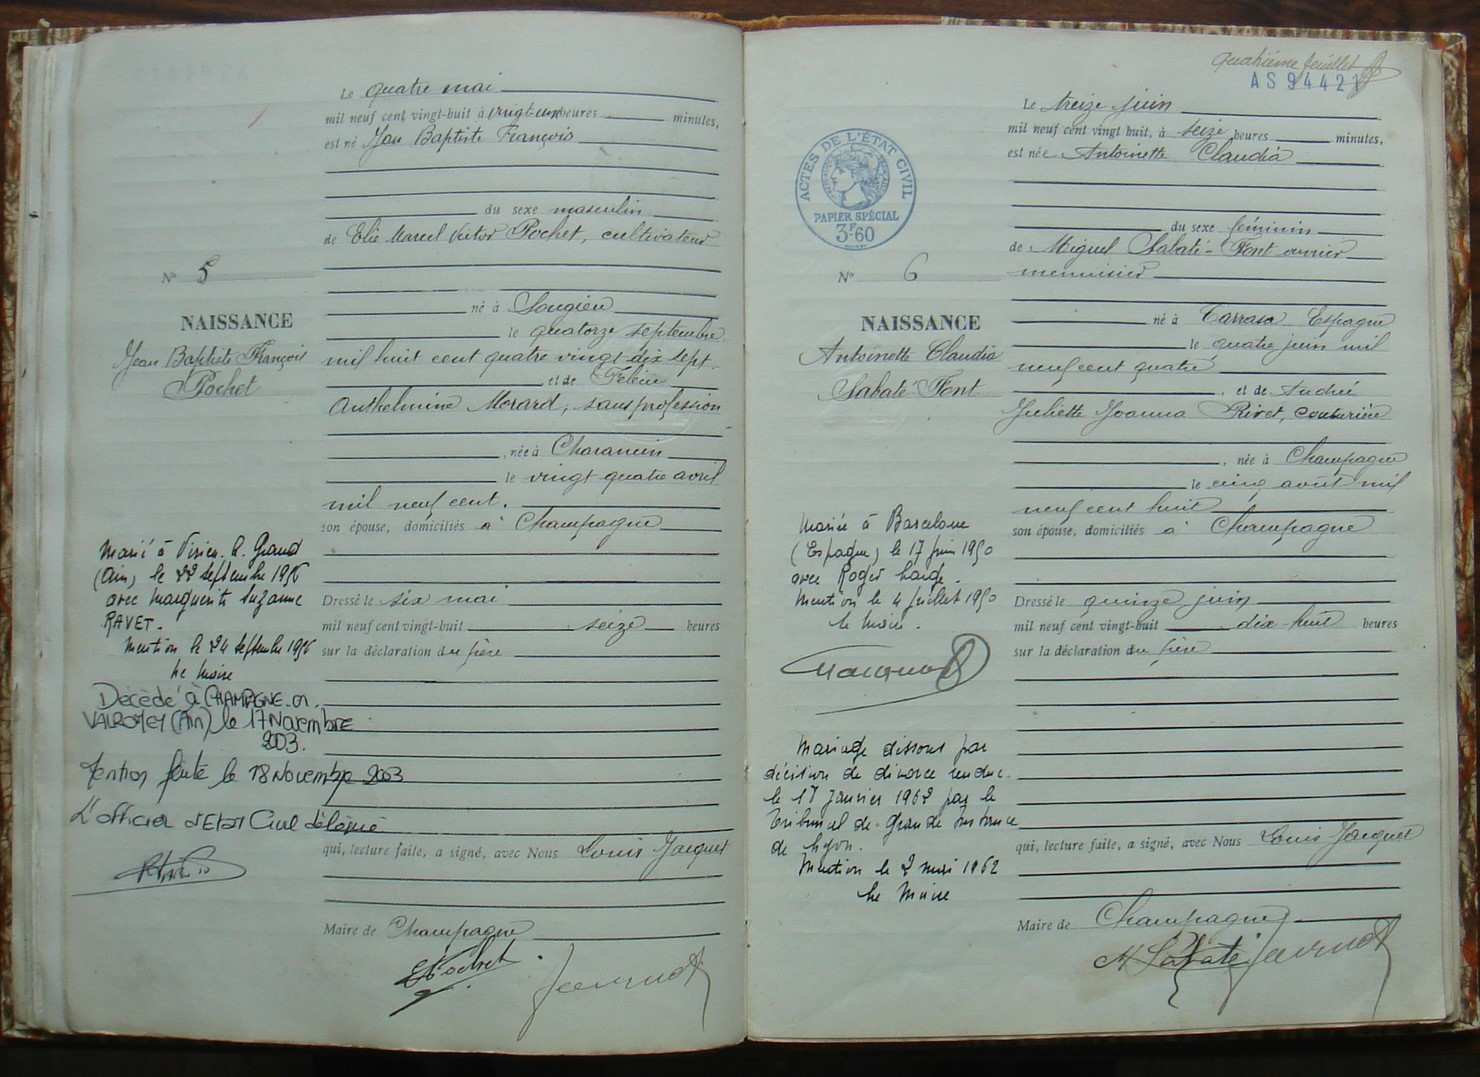 Le quatre mai
mil neuf cent vingt-huit à vingt-une heures minutes,
est né Jean Baptiste François
du sexe masculin
de Elie Marcel Victor Pochet, cultivateur
N° 5
né à Songieu
NAISSANCE
le quatorze septembre
Jean Baptiste François
Pochet
mil huit cent quatre vingt dix sept
et de
Anthelmine Morard, sans profession
, née à Charancin
le vingt quatre avril
mil neuf cent.
son épouse, domiciliés à Champagne
Marié à Virieu-le-Grand
(Ain) le 22 septembre 1956
avec Marguerite Suzanne
RAVET.
Mention le 24 septembre 1956
Le Maire
Dressé le six mai
mil neuf cent vingt-huit seize heures
sur la déclaration du père
Décédé à CHAMPAGNE.en.
VALROMEY (Ain) le 17 Novembre
2003.
Mention faite le 18 Novembre 2003
L'officier d'Etat Civil délégué
qui, lecture faite, a signé, avec Nous Louis Jacquet
Maire de Champagne
E Pochet
Quatrième feuillet
AS 94421
Le treize juin
mil neuf cent vingt huit, à seize heures minutes,
est née Antoinette Claudia
ACTES DE L'ÉTAT CIVIL
PAPIER SPÉCIAL
3F60
du sexe féminin
de Miguel Sabaté-Font ouvrier
menuisier
N° 6
né à Tarrasa Espagne
NAISSANCE
le quatre juin mil
Antoinette Claudia
Sabaté Font
neuf cent quatre
, et de Andrée
Juliette Joanna Rivet, couturière
, née à Champagne
le cinq août mil
neuf cent huit
son épouse, domiciliés à Champagne
Mariée à Barcelone
(Espagne) le 17 juin 1950
avec Roger
Mention le 4 juillet 1950
le Maire.
Dressé le quinze juin
mil neuf cent vingt-huit dix-huit heures
sur la déclaration du père
Mariage dissous par
décision de divorce rendue
le 17 Janvier 1962 par le
Tribunal de Grande Instance
de Lyon.
Mention le 2 mai 1962
Le Maire
qui, lecture faite, a signé, avec Nous Louis Jacquet
Maire de Champagne
M Sabaté Jacquet